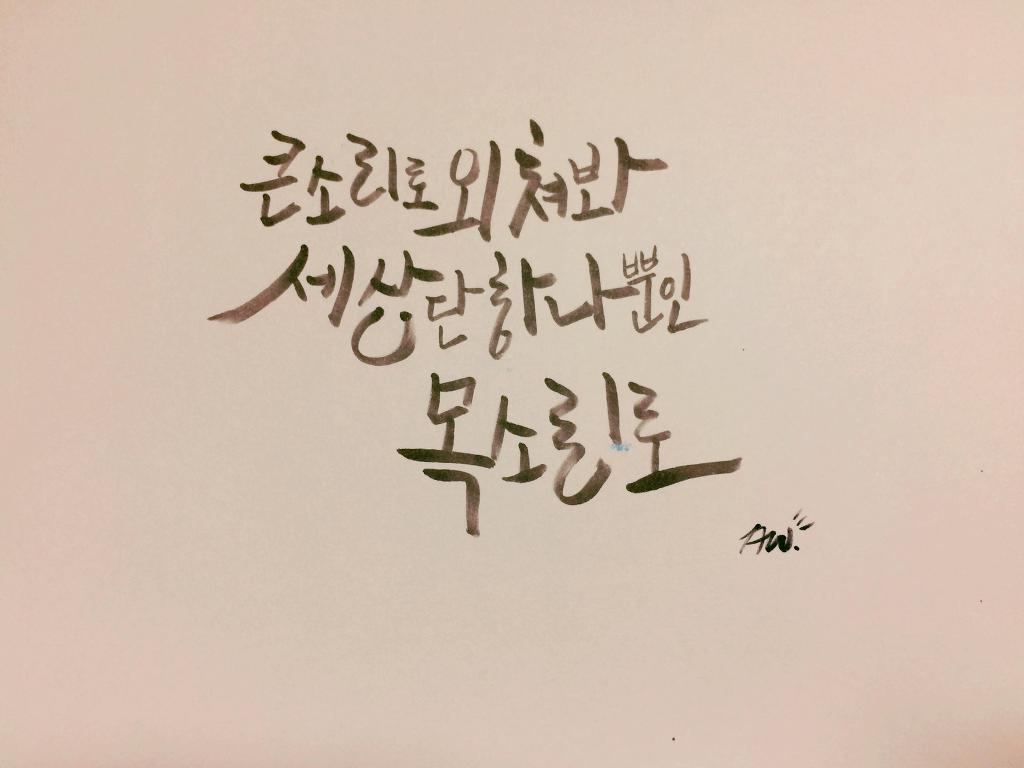 큰소리로 외쳐봐
세상 단 하나뿐인
목소리로
AW.